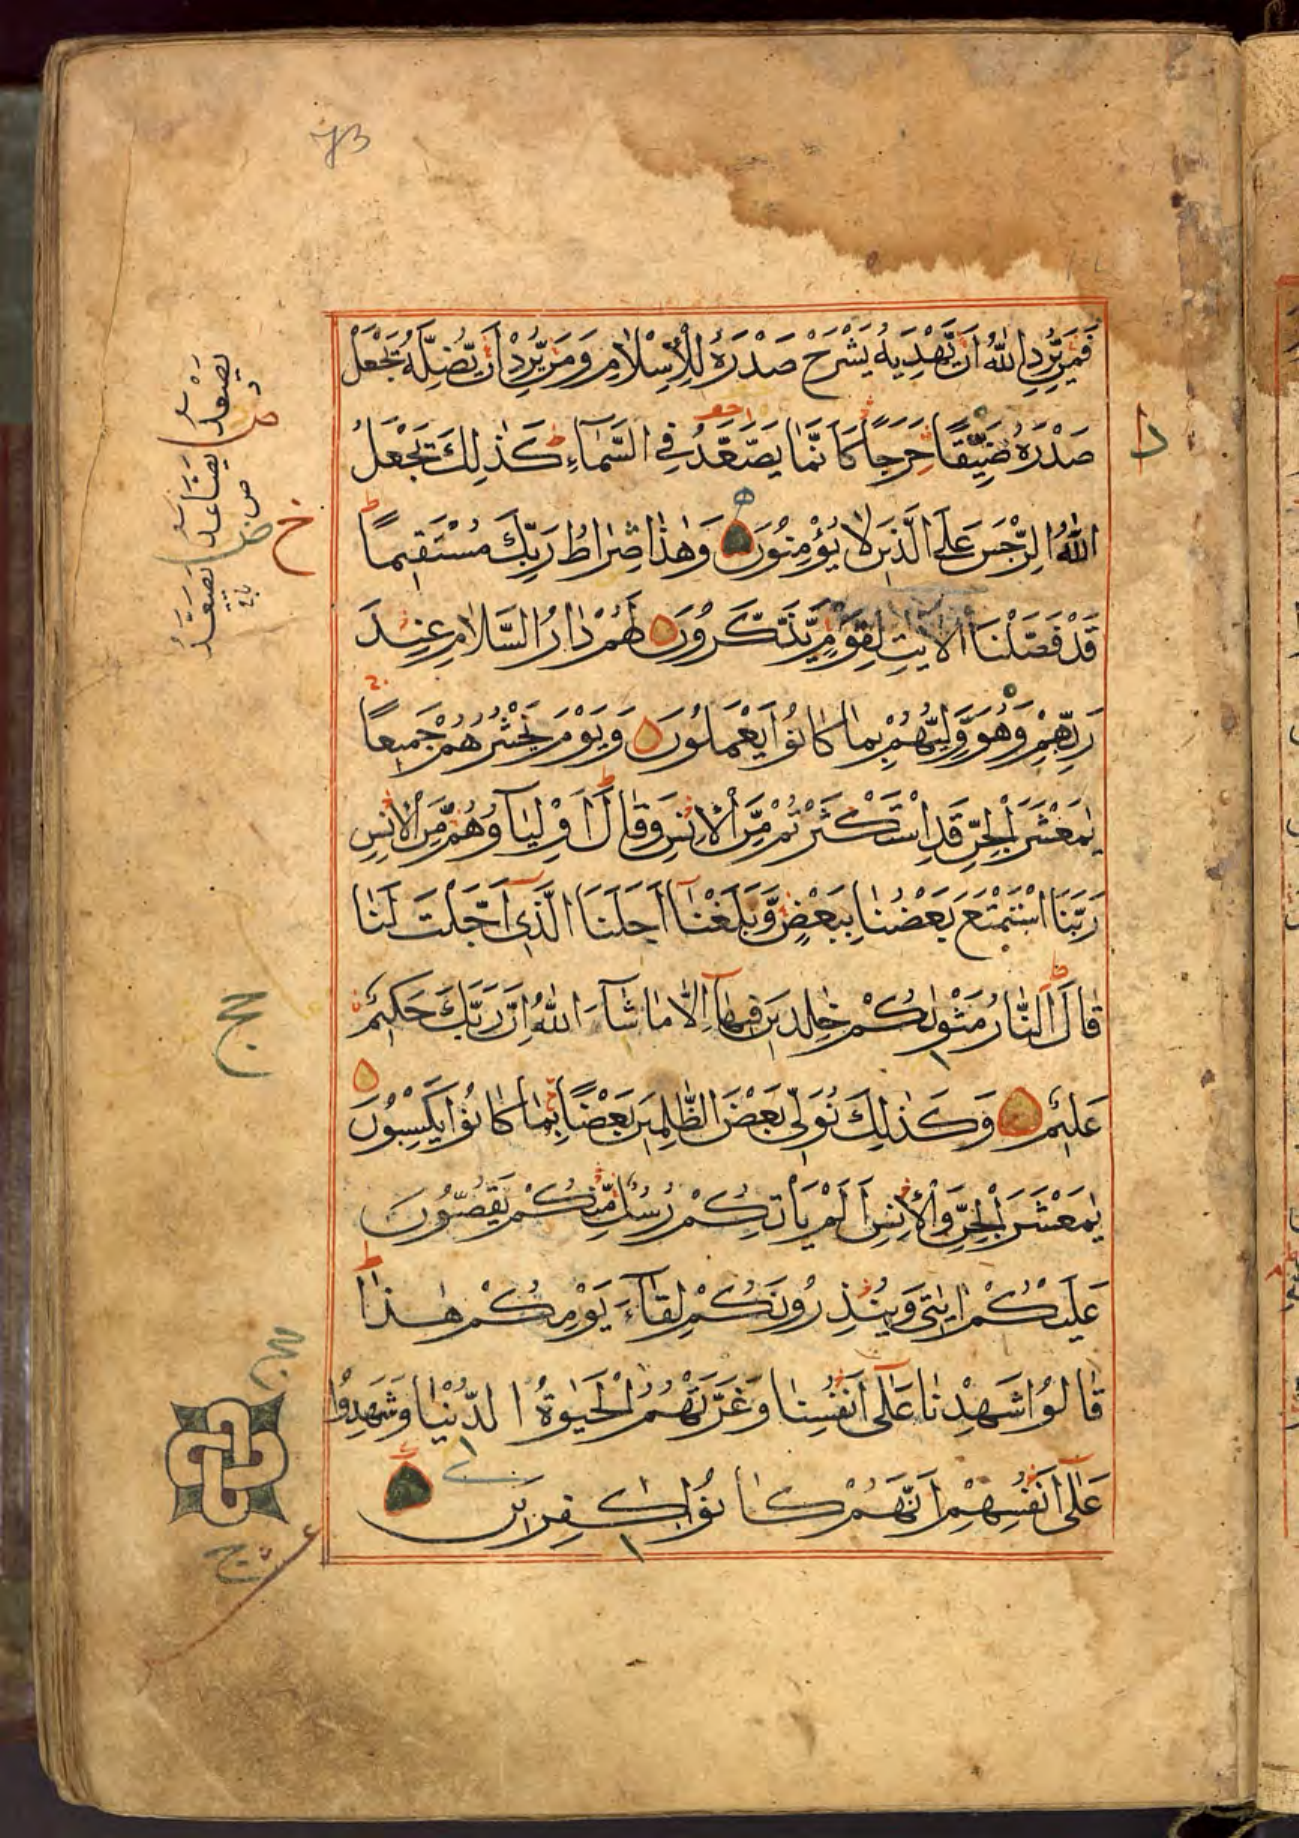 73
فَمَنْ يُّرِدِ اللّٰهُ اَنْ يَّهْدِيَهُ يَشْرَحْ صَدْرَهُ لِلْاِسْلَامِ وَمَنْ يُّرِدْ اَنْ يُّضِلَّهُ يَجْعَلْ
صَدْرَهُ ضَيِّقًا حَرَجًا كَاَنَّمَا يَصَّعَّدُ فِي السَّمَآءِ كَذٰلِكَ يَجْعَلُ
اللّٰهُ الرِّجْسَ عَلَى الَّذِيْنَ لَا يُؤْمِنُوْنَ وَهٰذَا صِرَاطُ رَبِّكَ مُسْتَقِيْمًا
قَدْ فَصَّلْنَا الْاٰيٰتِ لِقَوْمٍ يَّذَّكَّرُوْنَ لَهُمْ دَارُ السَّلَامِ عِنْدَ
رَبِّهِمْ وَهُوَ وَلِيُّهُمْ بِمَا كَانُوْا يَعْمَلُوْنَ وَيَوْمَ نَحْشُرُهُمْ جَمِيْعًا
يٰمَعْشَرَ الْجِنِّ قَدِ اسْتَكْثَرْتُمْ مِّنَ الْاِنْسِ وَقَالَ اَوْلِيَآؤُهُمْ مِّنَ الْاِنْسِ
رَبَّنَا اسْتَمْتَعَ بَعْضُنَا بِبَعْضٍ وَّبَلَغْنَآ اَجَلَنَا الَّذِيْٓ اَجَّلْتَ لَنَا
قَالَ النَّارُ مَثْوٰىكُمْ خٰلِدِيْنَ فِيْهَآ اِلَّا مَا شَآءَ اللّٰهُ اِنَّ رَبَّكَ حَكِيْمٌ
عَلِيْمٌ وَكَذٰلِكَ نُوَلِّيْ بَعْضَ الظّٰلِمِيْنَ بَعْضًا بِمَا كَانُوْا يَكْسِبُوْنَ
يٰمَعْشَرَ الْجِنِّ وَالْاِنْسِ اَلَمْ يَاْتِكُمْ رُسُلٌ مِّنْكُمْ يَقُصُّوْنَ
عَلَيْكُمْ اٰيٰتِيْ وَيُنْذِرُوْنَكُمْ لِقَآءَ يَوْمِكُمْ هٰذَا
قَالُوْا شَهِدْنَا عَلٰٓى اَنْفُسِنَا وَغَرَّتْهُمُ الْحَيٰوةُ الدُّنْيَا وَشَهِدُوْا
عَلٰٓى اَنْفُسِهِمْ اَنَّهُمْ كَانُوْا كٰفِرِيْنَ